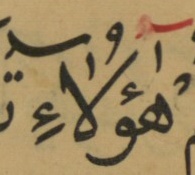 هٰؤُلَاءِ